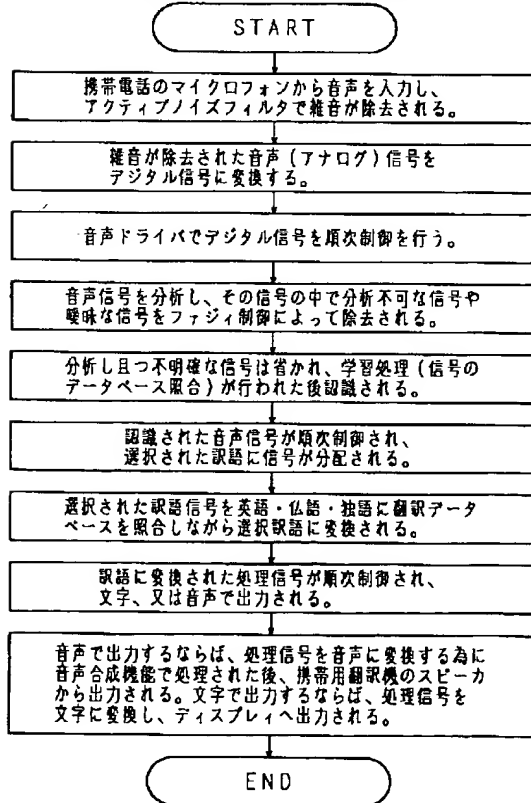 START
携帯電話のマイクロフォンから音声を入力し、
アクティブノイズフィルタで雑音が除去される。
雑音が除去された音声(アナログ)信号を
デジタル信号に変換する。
音声ドライバでデジタル信号を順次制御を行う。
音声信号を分析し、その信号の中で分析不可な信号や
曖昧な信号をファジィ制御によって除去される。
分析し且つ不明確な信号は省かれ、学習処理(信号の
データベース照合)が行われた後認識される。
認識された音声信号が順次制御され、
選択された訳語に信号が分配される。
選択された訳語信号を英語・仏語・独語に翻訳データ
ベースを照合しながら選択訳語に変換される。
訳語に変換された処理信号が順次制御され、
文字、又は音声で出力される。
音声で出力するならば、処理信号を音声に変換する為に
音声合成機能で処理された後、携帯用翻訳機のスピーカ
から出力される。文字で出力するならば、処理信号を
文字に変換し、ディスプレィへ出力される。
END